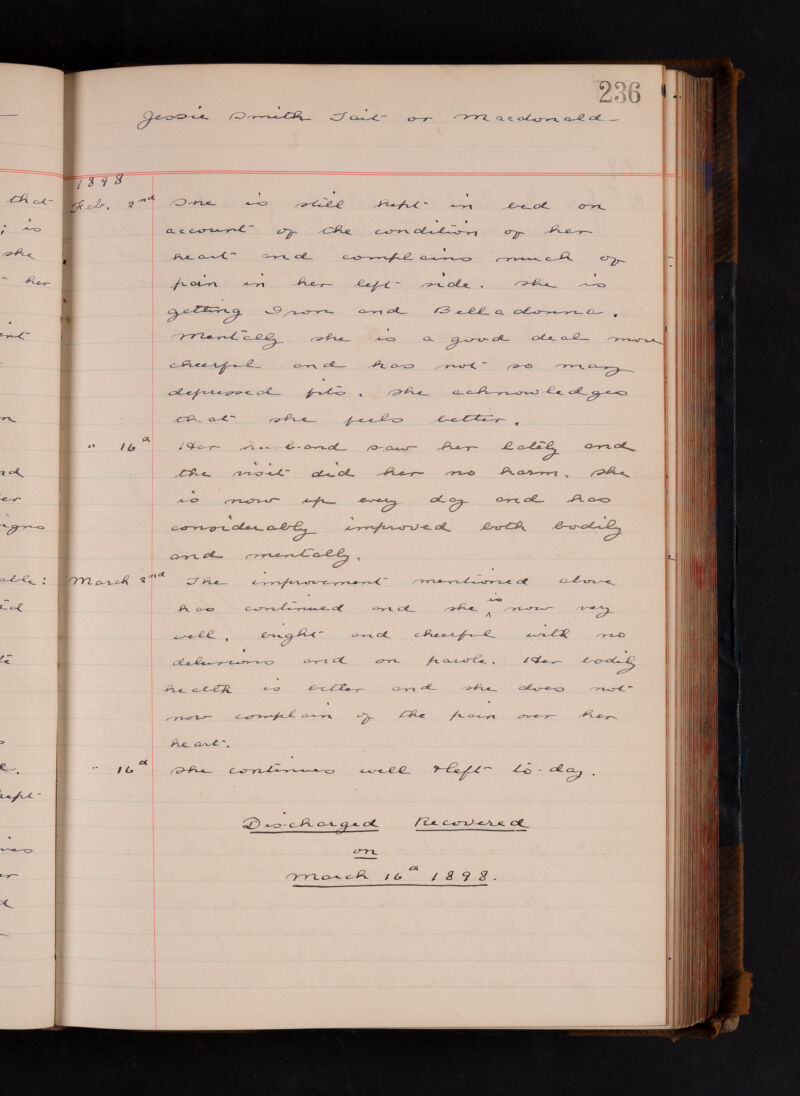 236
Jessie Smith Tait or Macdonald
that
; is
she
her
1898
Feb. 2nd She is still kept in bed on
account of the condition of her
heart and complains much of
pain in her left side. She is
getting Iron and Belladonna.
Mentally she is a good deal more
cheerful and has not so many
depressed fits. She acknowledges
that she feels better.
" 16d Her husband saw her lately and
the visit did her no harm. She
is now up every day and has
considerably improved both bodily
and mentally.
March 2nd The improvement mentioned above
has continued and she is now very
well, bright and cheerful with no
delusions and on parole. Her bodily
health is better and she does not
now complain of the pain over her
heart.
" 16d She continues well & left to-day.
Discharged Recovered
on
March 16d 1898.